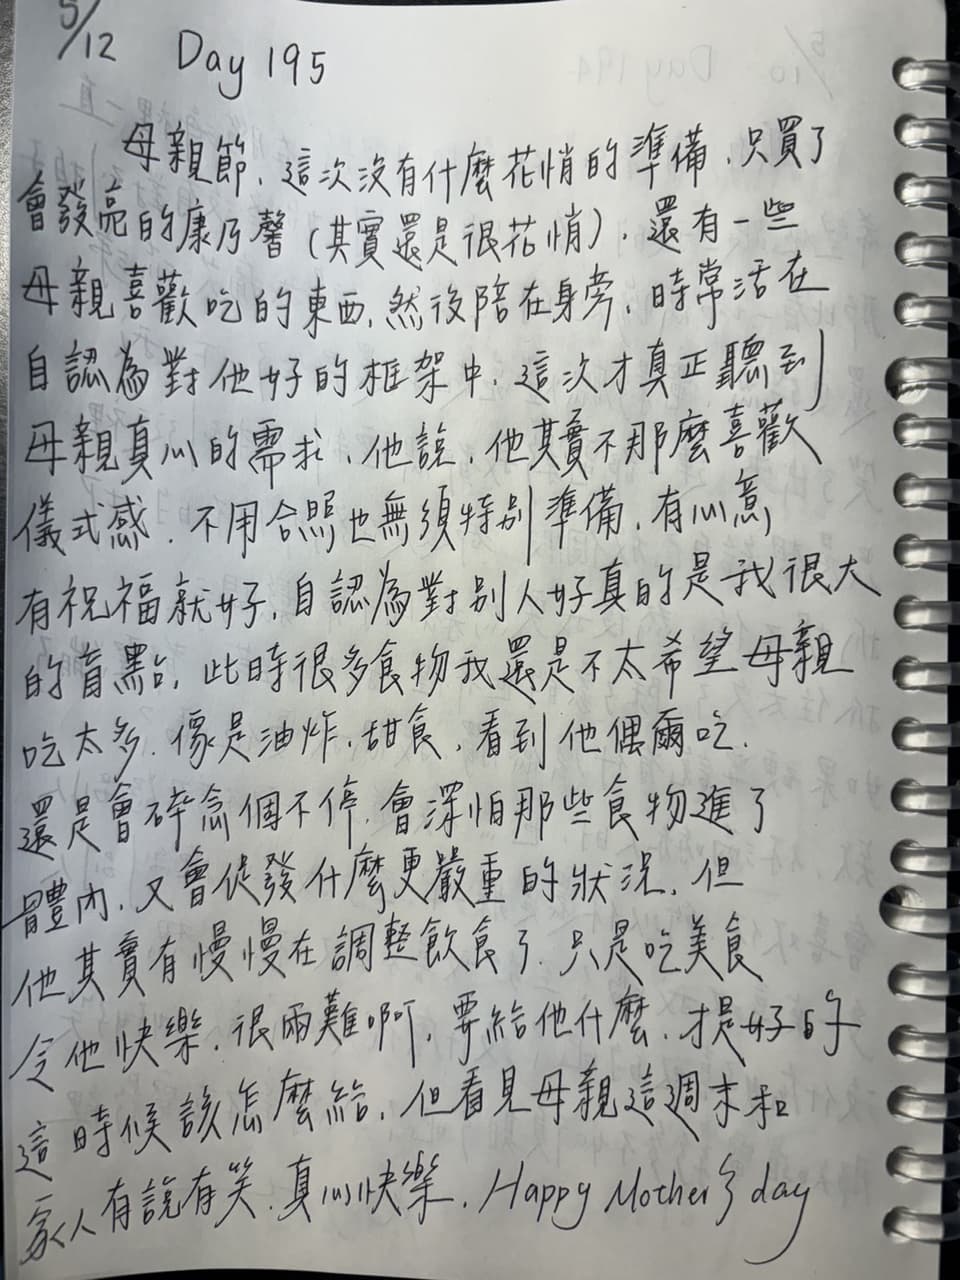 5/12 Day 195
母親節,這次沒有什麼花悄的準備,只買了
會發亮的康乃馨(其實還是很花悄),還有一些
母親喜歡吃的東西,然後陪在身旁,時常活在
自認為對他好的框架中,這次才真正聽到
母親真心的需求,他說,他其實不那麼喜歡
儀式感,不用合照也無須特別準備,有心意
有祝福就好,自認為對別人好真的是我很大
的盲點,此時很多食物我還是不太希望母親
吃太多,像是油炸,甜食,看到他偶爾吃,
還是會碎念個不停,會深怕那些食物進了
體內,又會促發什麼更嚴重的狀況,但
他其實有慢慢在調整飲食了,只是吃美食
令他快樂,很兩難啊,要給他什麼,才是好的
這時候該怎麼給,但看見母親這週末和
家人有說有笑,真心快樂,Happy Mother's day